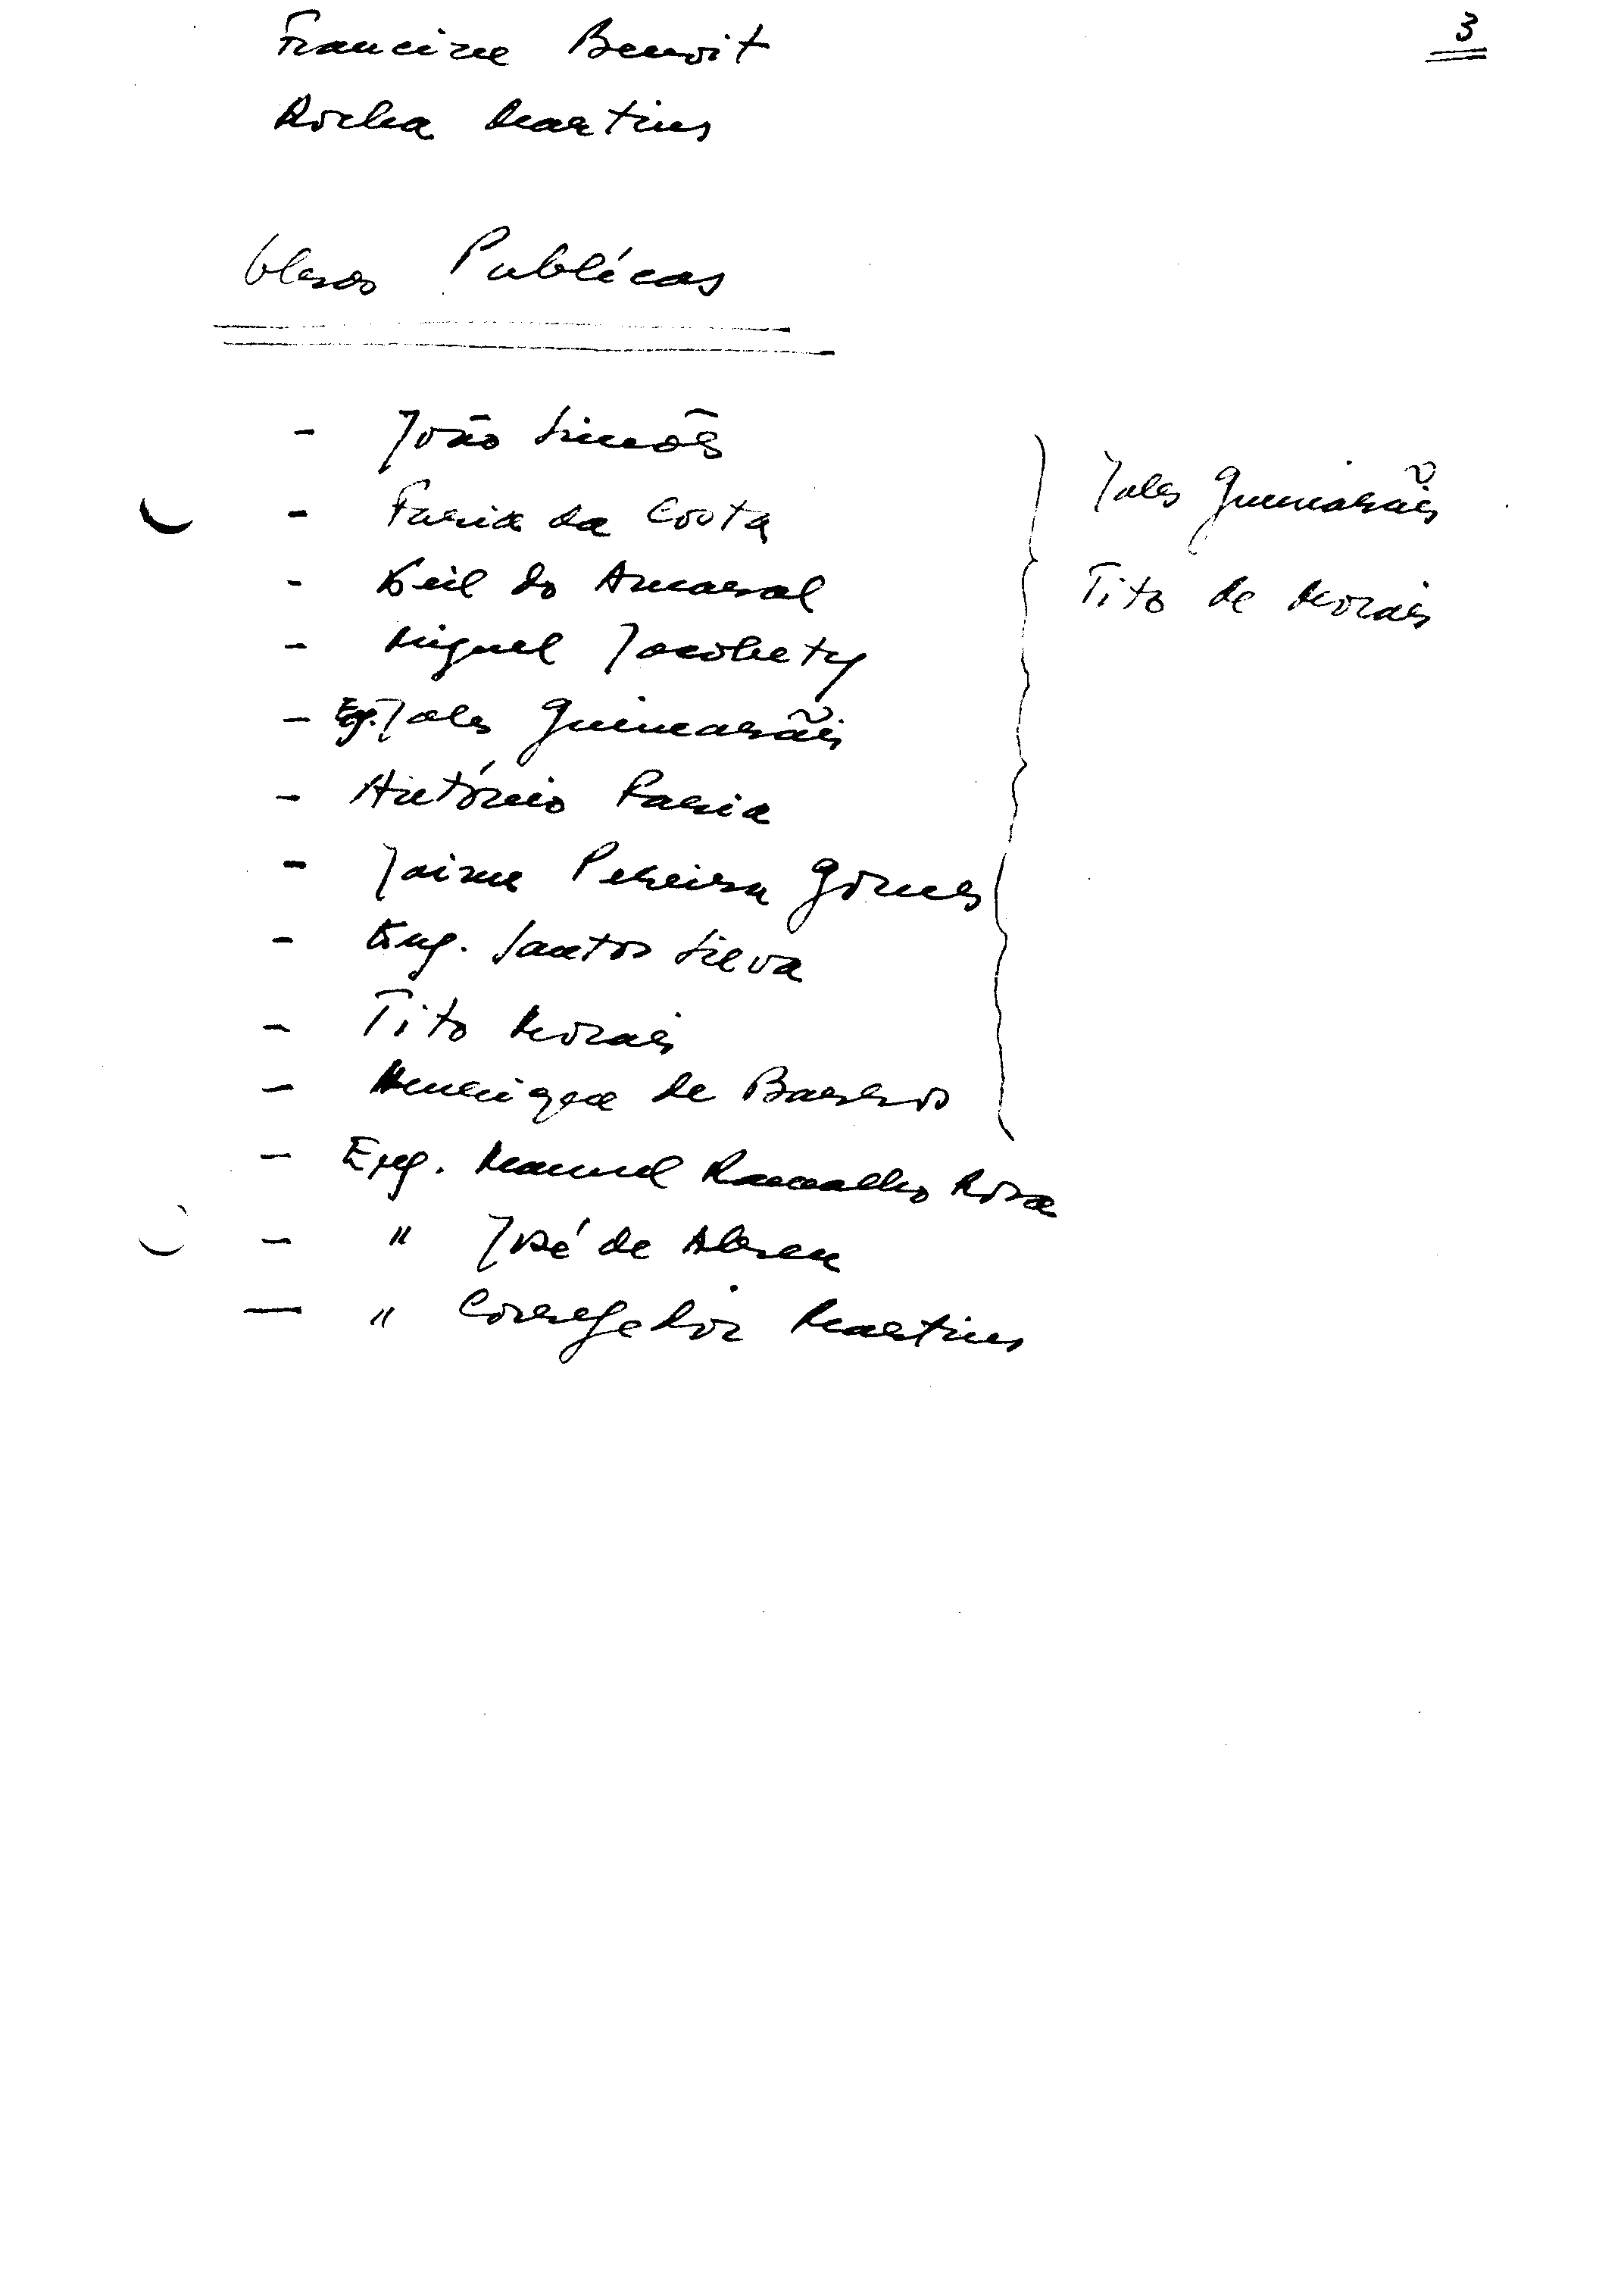 3
Francine Benoit
Rocha Martins
Obras Públicas
- João Simões
- Faria da Costa
- Keil do Amaral
- Miguel Jacobety
- Eng. Jales Guimarãis
- António Faria
- Jaime Pereira Gomes
- Eng. Santos Silva
- Tito Morais
- Henrique de Barros
- Eng. Manuel Ramalho Rosa
- " José de Abreu
- " Corregedor Martins
Jales Guimarãis
Tito de Morais